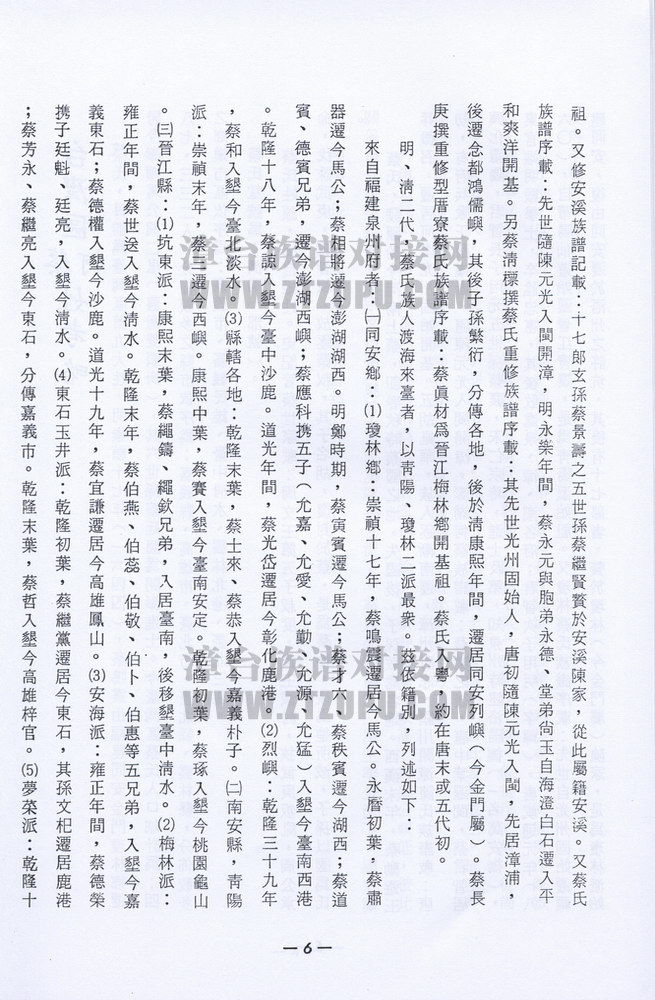 祖。又修安溪族譜記載：十七郎玄孫蔡景壽之五世孫蔡繼賢贅於安溪陳家，從此屬籍安溪。又蔡氏
族譜序載：先世隨陳元光入閩開漳，明永樂年間，蔡永元與胞弟永德、堂弟尙玉自海澄白石遷入平
和爽洋開基。另蔡淸標撰蔡氏重修族譜序載：其先世光州固始人，唐初隨陳元光入閩，先居漳浦，
後遷念都鴻儒嶼，其後子孫繁衍，分傳各地，後於淸康熙年間，遷居同安列嶼（今金門屬）。蔡長
庚撰重修型厝寮蔡氏族譜序載：蔡眞材爲晉江梅林鄕開基祖。蔡氏入粵，約在唐末或五代初。
明、淸二代，蔡氏族人渡海來臺者，以靑陽、瓊林二派最衆。茲依籍別，列述如下：
來自福建泉州府者：㈠同安鄕：⑴瓊林鄕：崇禎十七年，蔡鳴震遷居今馬公。永曆初葉，蔡肅
器遷今馬公；蔡相將遷今澎湖湖西。明鄭時期，蔡寅賓遷今馬公；蔡才六、蔡秩賓遷今湖西；蔡道
賓、德賓兄弟，遷今澎湖西嶼；蔡應科携五子（尤嘉、尤愛、尤勤、尤源、尤猛）入墾今臺南西港
。乾隆十八年，蔡諒入墾今臺中沙鹿。道光年間，蔡光岱遷居今彰化鹿港。⑵烈嶼：乾隆三十九年
，蔡和入墾今臺北淡水。⑶縣轄各地：乾隆末葉，蔡士來、蔡恭入墾今嘉義朴子。㈡南安縣，靑陽
派：崇禎末年，蔡三遷今西嶼。康熙中葉，蔡賽入墾今臺南安定。乾隆初葉，蔡琢入墾今桃園龜山
。㈢晉江縣：⑴坑東派：康熙末葉，蔡繩鑄、繩欽兄弟，入居臺南，後移墾臺中淸水。⑵梅林派：
雍正年間，蔡世送入墾今淸水。乾隆末年，蔡伯燕、伯蕊、伯敬、伯卜、伯惠等五兄弟，入墾今嘉
義東石；蔡德權入墾今沙鹿。道光十九年，蔡宜謙遷居今高雄鳳山。⑶安海派：雍正年間，蔡德榮
携子廷魁、廷亮，入墾今淸水。⑷東石玉井派：乾隆初葉，蔡繼黨遷居今東石，其孫文杞遷居鹿港
；蔡芳永、蔡繼亮入墾今東石，分傳嘉義市。乾隆末葉，蔡哲入墾今高雄梓官。⑸夢榮派：乾隆十
— 6 —
漳台族谱对接网
WWW.ZTZUPU.COM
漳台族谱对接网
WWW.ZTZUPU.COM